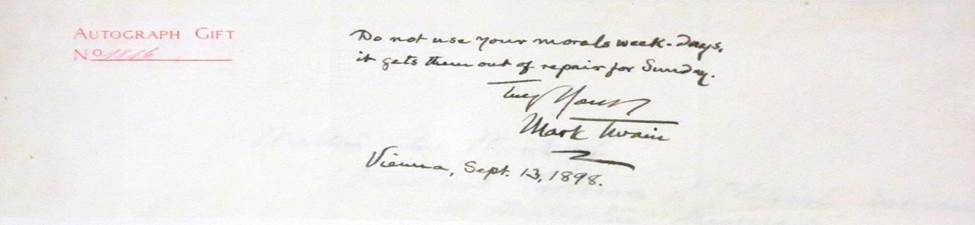 AUTOGRAPH GIFT
Nº 1816
Do not use your morals week-days,
it gets them out of repair for Sunday.
Truly Yours
Mark Twain
Vienna, Sept. 13, 1898.